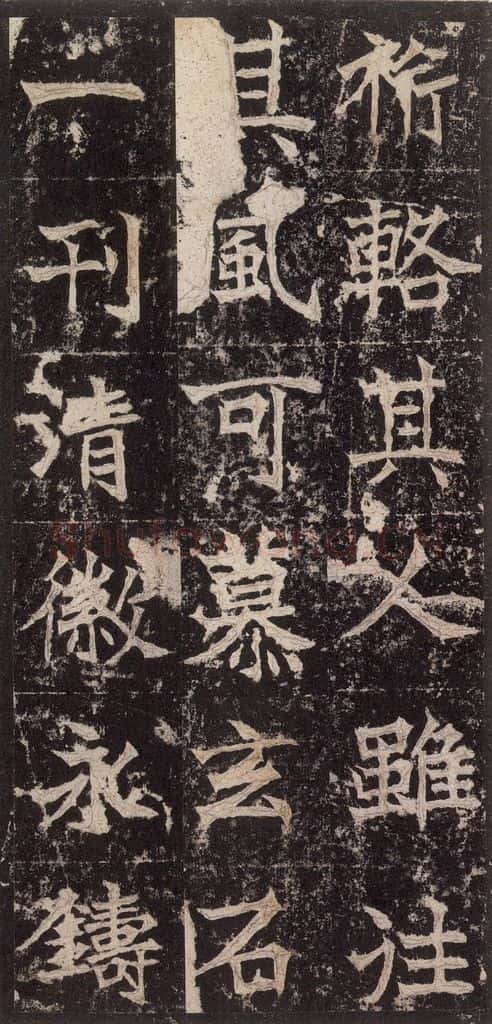 輅其雖往
其風可慕玄石
一刊清徽永鑄
Shufawang.CN